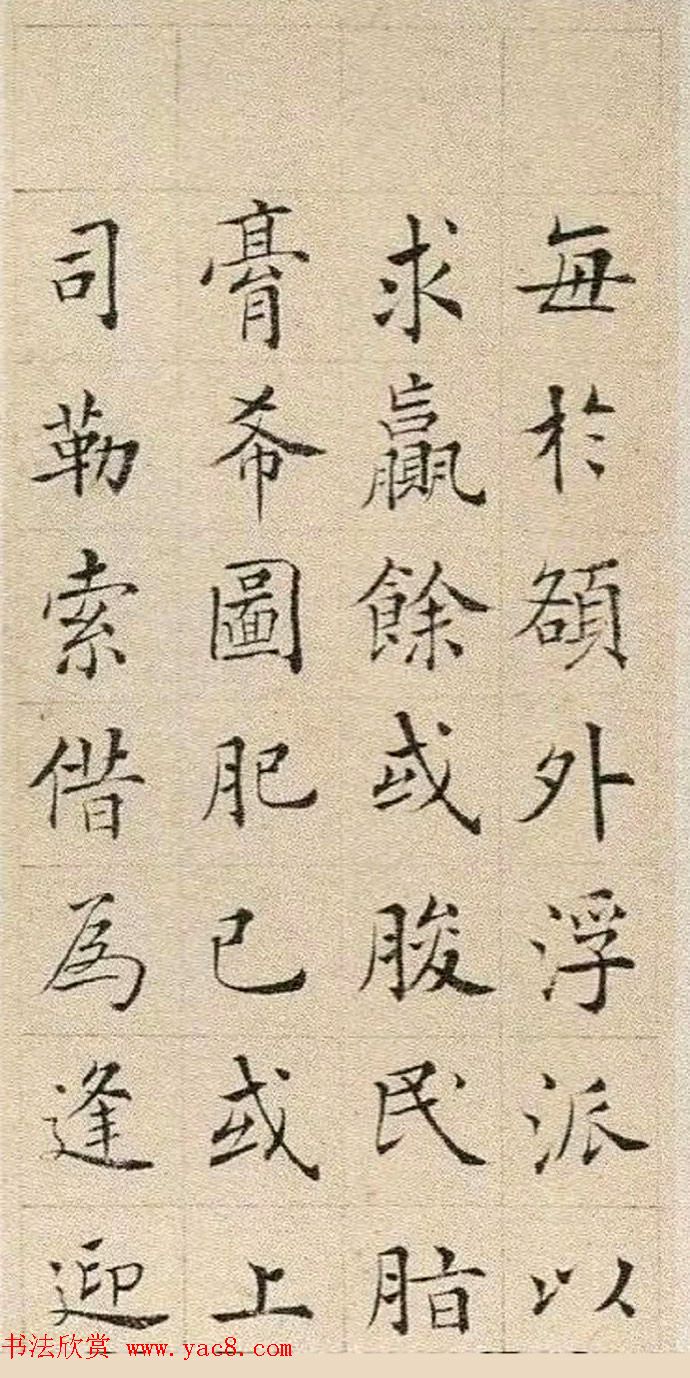 每於額外浮派以
求贏餘或朘民脂
膏希圖肥己或上
司勒索借為逢迎
书法欣赏 www.yac8.com